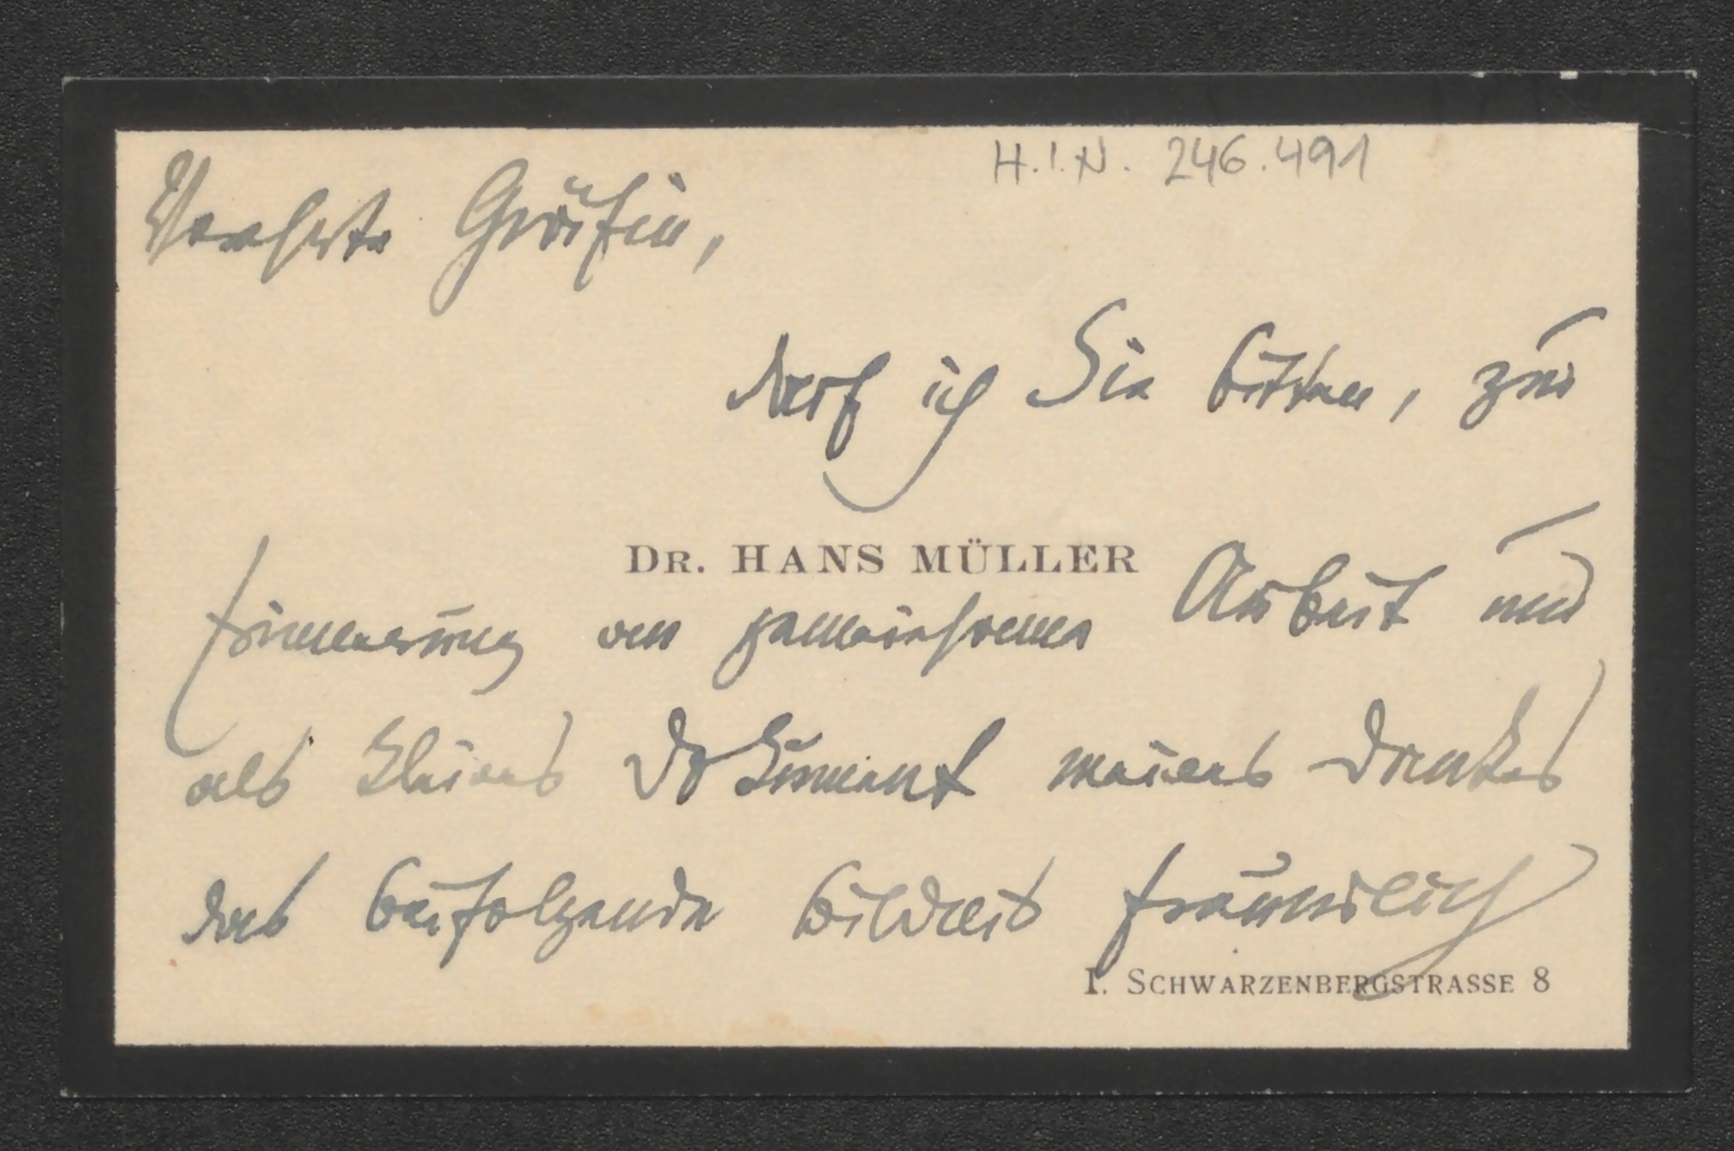 H.I.N. 246.491
Verehrte Gräfin,
darf ich Sie bitten, zur
DR. HANS MÜLLER
Erinnerung an gemeinsame Arbeit und
als kleines Dokument meines Dankes
das beifolgende Bildnis freundlich
I. SCHWARZENBERGSTRASSE 8